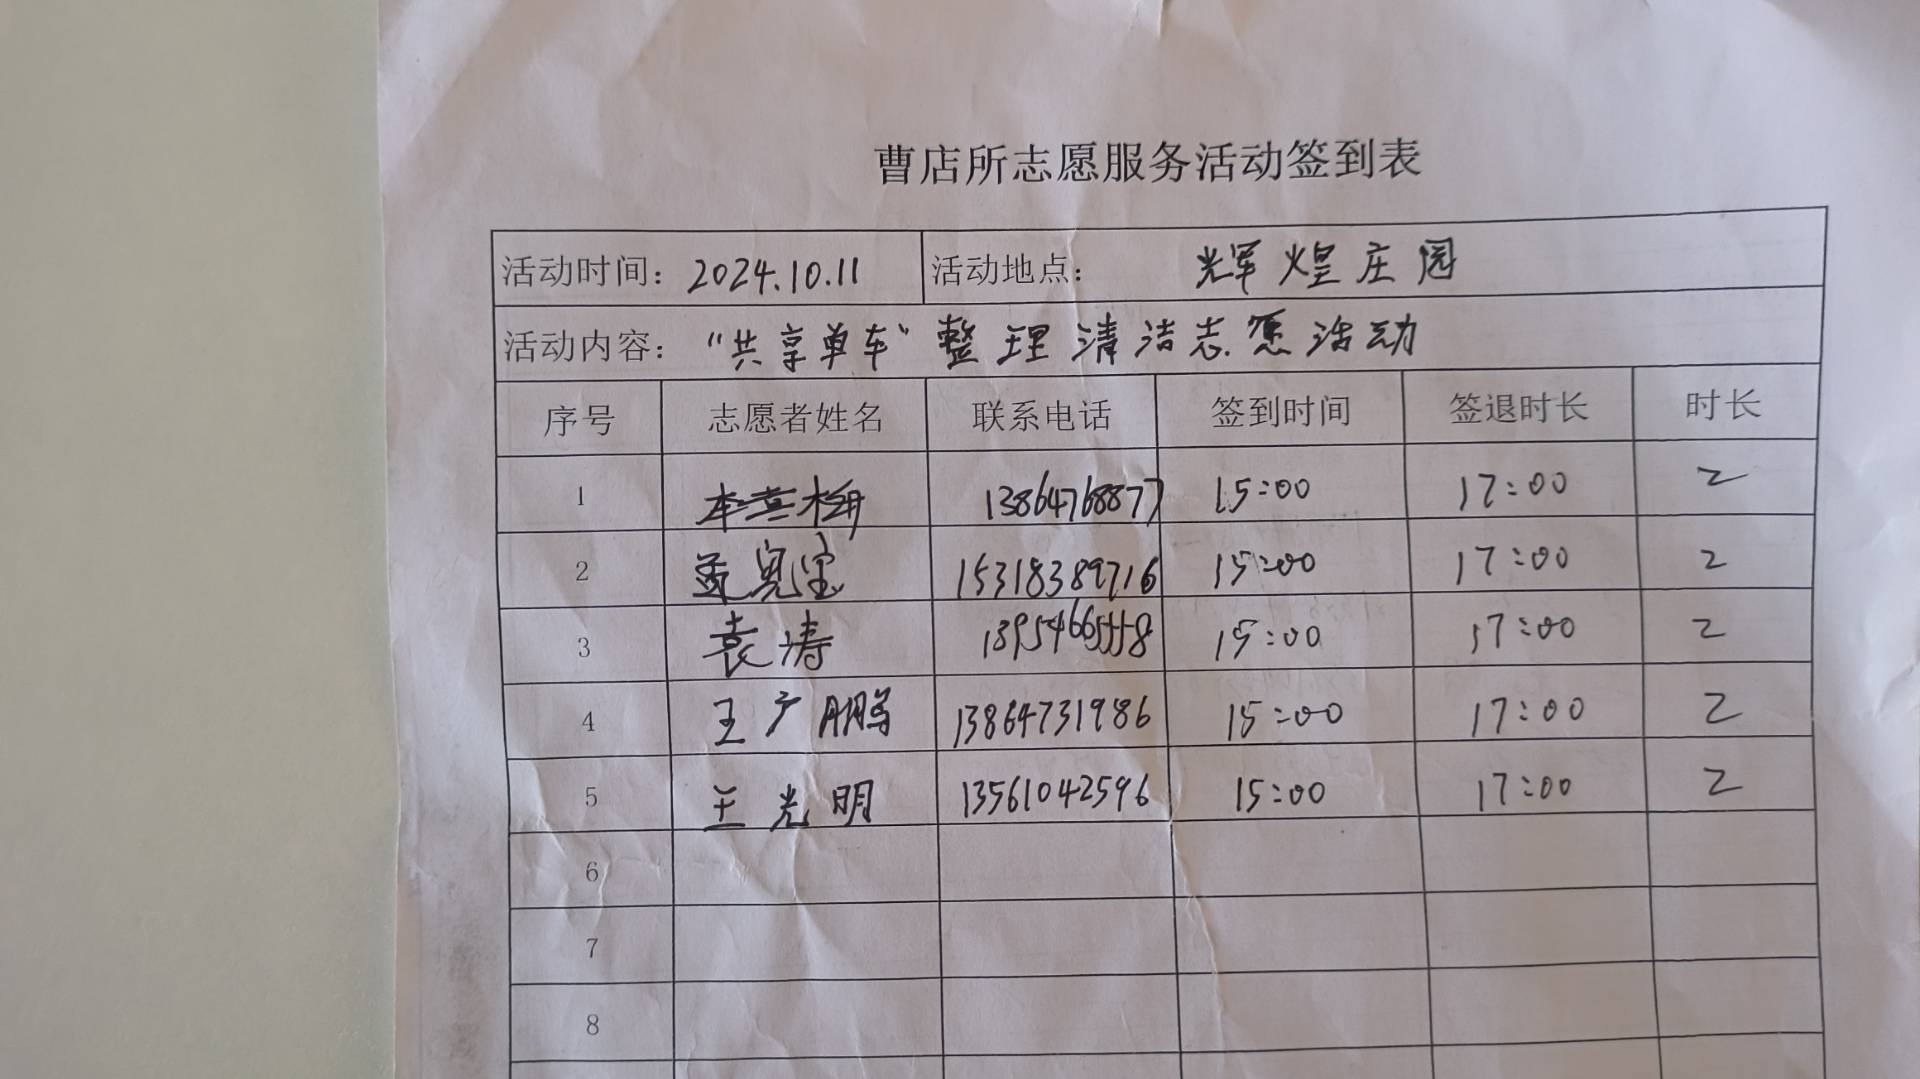 曹店所志愿服务活动签到表
活动时间：2024.10.11 活动地点： 辉煌庄园
活动内容：“共享单车”整理清洁志愿活动
序号 志愿者姓名 联系电话 签到时间 签退时长 时长
1 13864768877 15:00 17:00 2
2 15318389716 15:00 17:00 2
3 袁涛 15:00 17:00 2
4 王广鹏 13864731986 15:00 17:00 2
5 王光明 13561042596 15:00 17:00 2
6
7
8